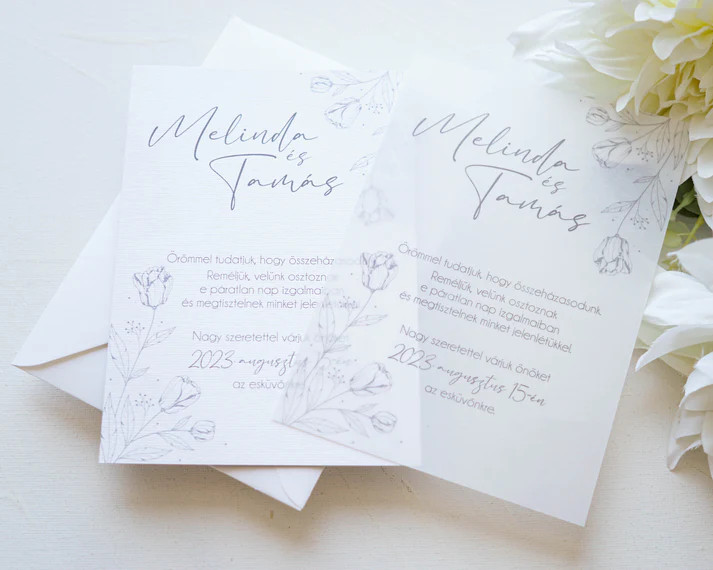 Melinda
és
Tamás
Örömmel tudatjuk, hogy összeházasodunk
Reméljük, velünk osztoznak
e páratlan nap izgalmaiban
és megtisztelnek minket
Nagy szeretettel várjuk önöket
2023 augusztus
az esküvőnkre.
Melinda
és
Tamás
Örömmel tudatjuk, hogy összeházasodunk
Reméljük, velünk osztoznak
e páratlan nap izgalmaiban
és megtisztelnek minket jelenlétükkel.
Nagy szeretettel várjuk önöket
2023 augusztus 15-én
az esküvőnkre.